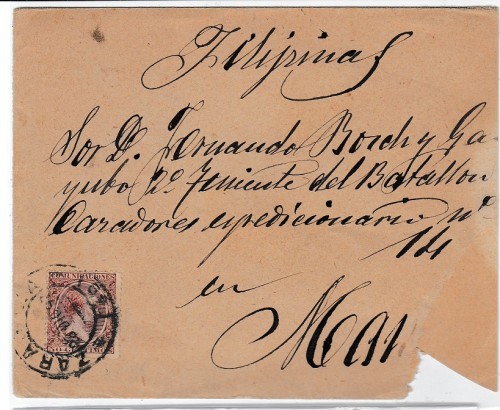 Filipinas
Sor D. Fernando Bosch y Ga
yubo 2º Teniente del Batallon
Cazadores expedicionario nº
14
en
Man
COMUNICACIONES
ZARA